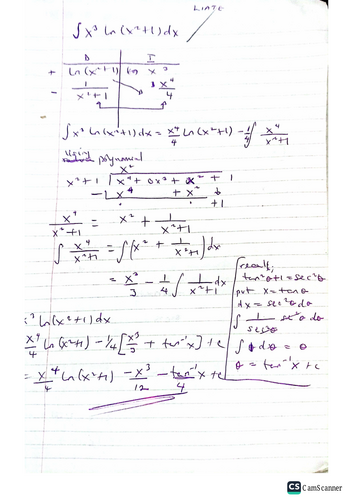 LIATE
∫ x³ ln(x²+1) dx
D I
+ ln(x²+1) x³
- 1/(x²+1) x⁴/4
∫x³ ln(x²+1) dx = x⁴/4 ln(x²+1) - 1/4 ∫ x⁴/(x²+1)
Using polynomial
x²
x²+1 | x⁴ + 0x³ + x² + 1
- x⁴ + x² ↓
+1
x⁴/(x²+1) = x² + 1/(x²+1)
∫ x⁴/(x²+1) = ∫(x² + 1/(x²+1)) dx
= x³/3 - 1/4 ∫ 1/(x²+1) dx
recall;
tan²θ+1 = sec²θ
put x = tanθ
dx = sec²θ dθ
∫ 1/sec²θ sec²θ dθ
∫ dθ = θ
θ = tan⁻¹x + c
x³ ln(x²+1) dx
x⁴/4 ln(x²+1) - 1/4 [x³/3 + tan⁻¹x] + c
= x⁴/4 ln(x²+1) - x³/12 - tan⁻¹x/4 + c
CS CamScanner